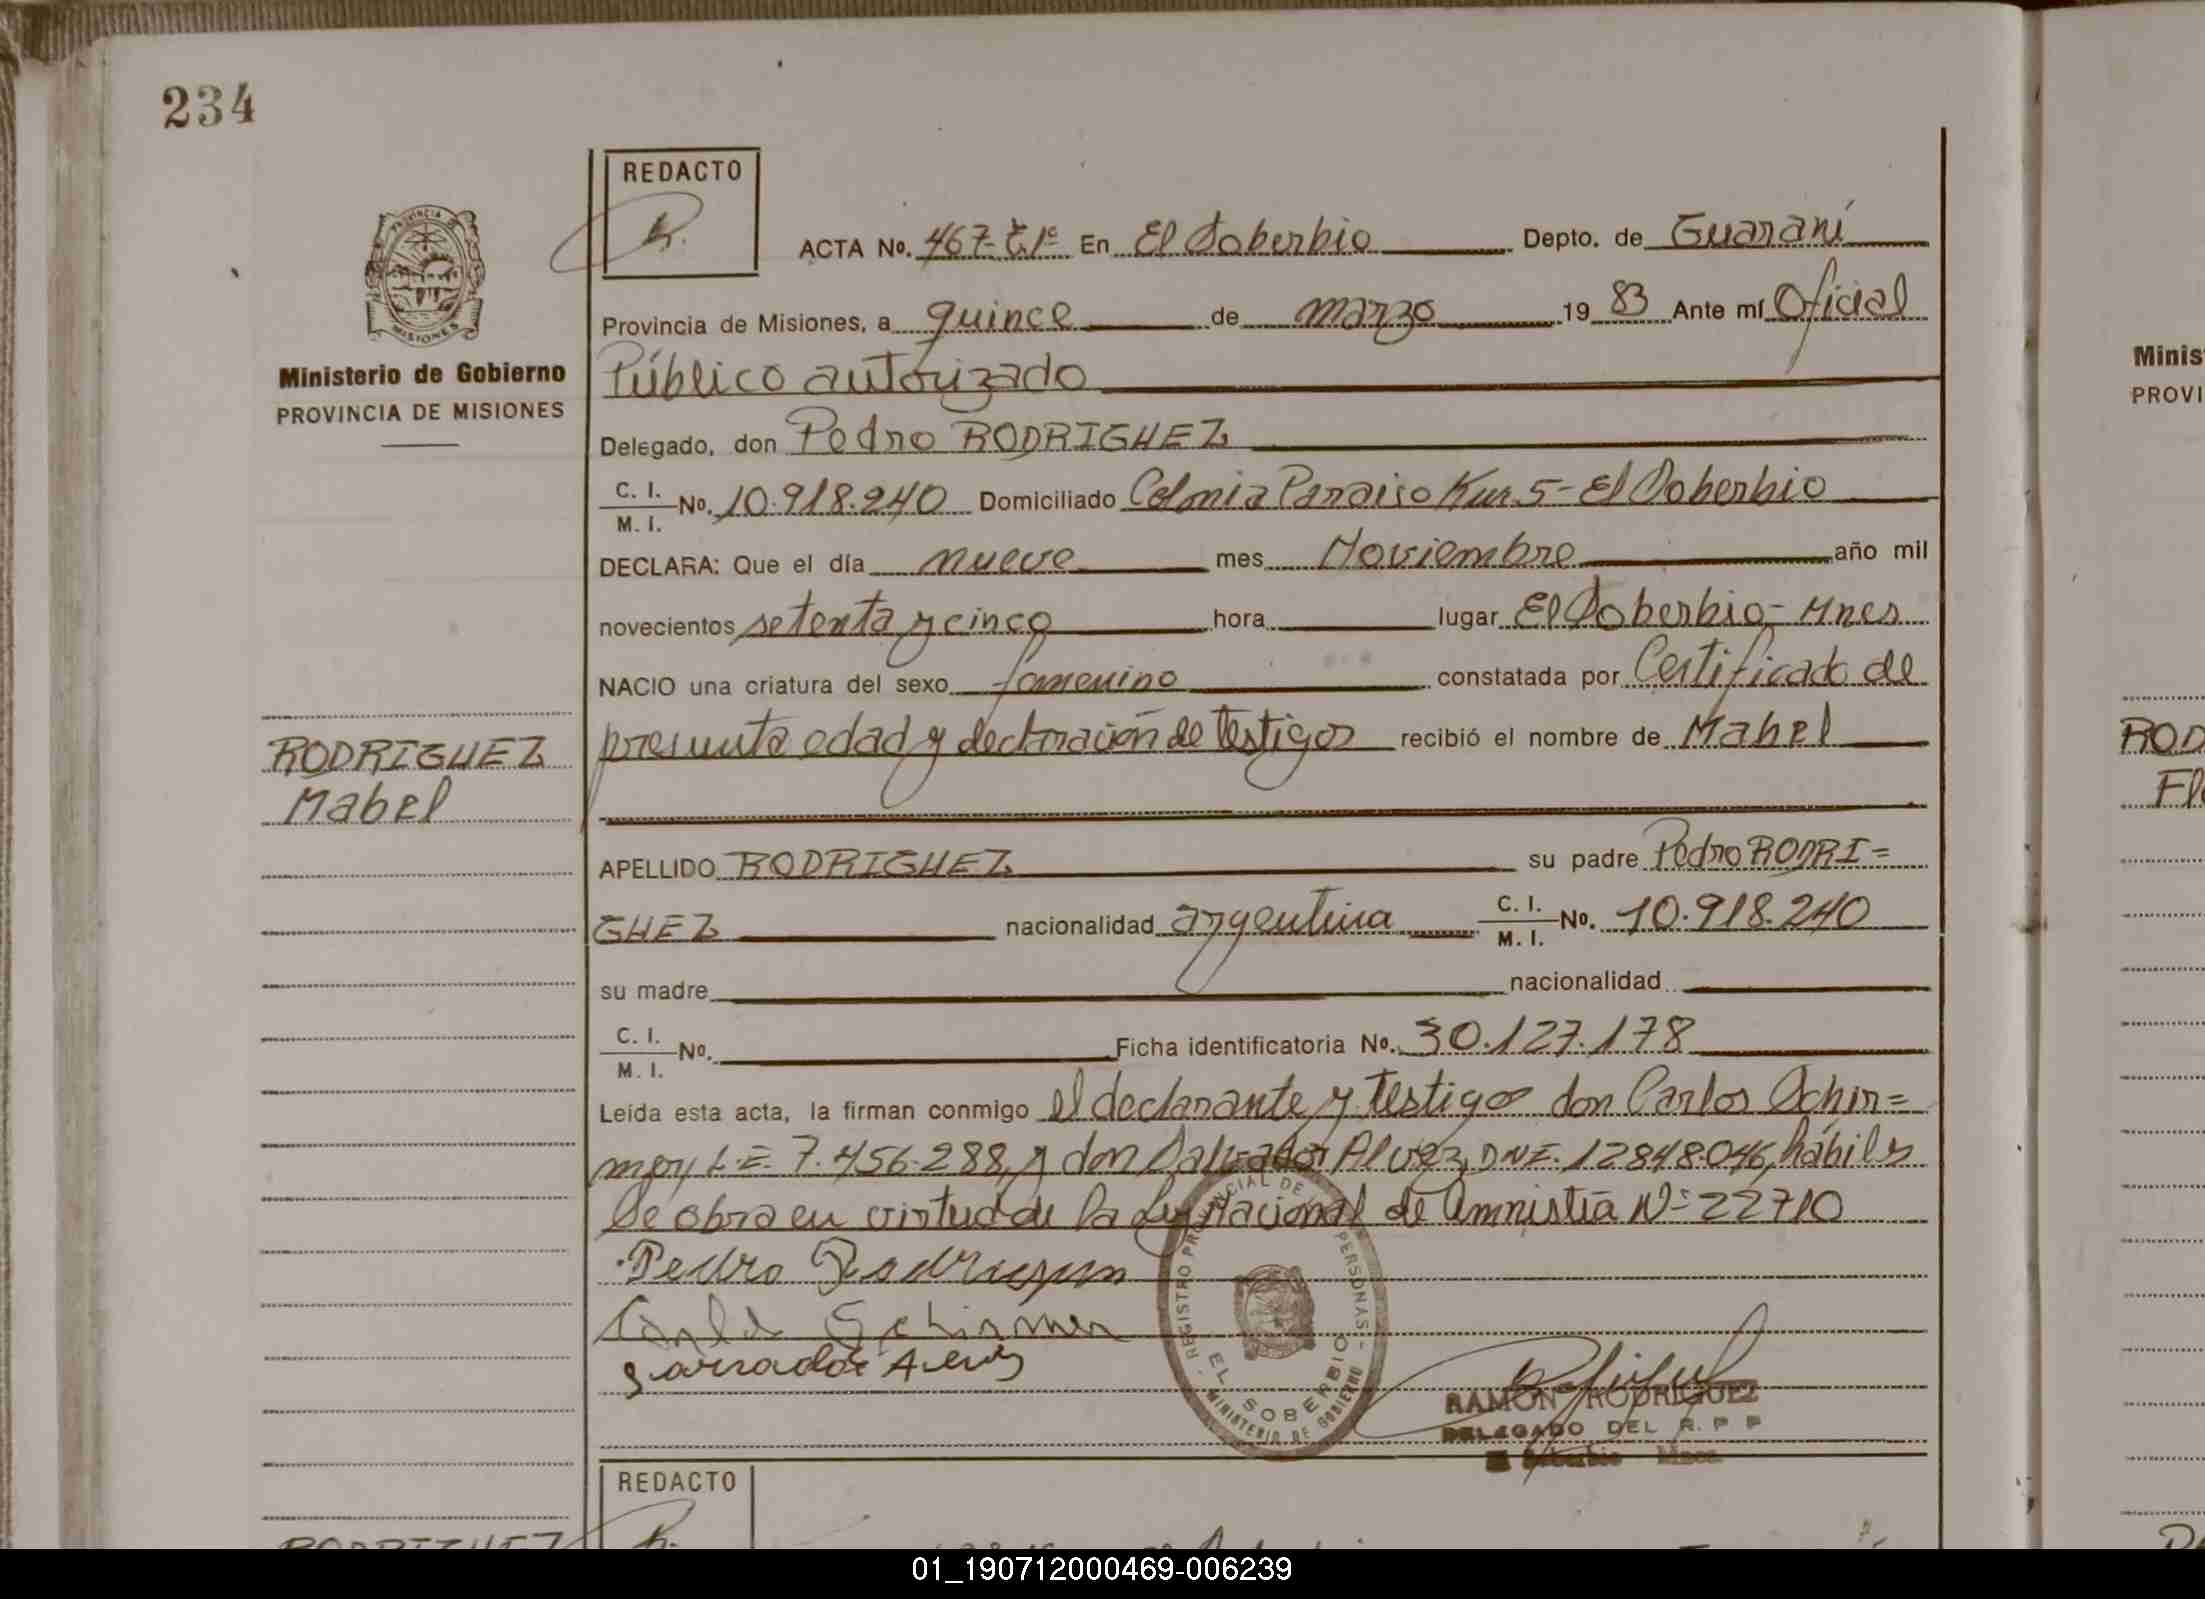 234
REDACTO
ACTA No. 467-Tº1º En El Soberbio Depto. de Guaraní
Provincia de Misiones, a quince de marzo 1983 Ante mí Oficial
Público autorizado
Ministerio de Gobierno
PROVINCIA DE MISIONES
Delegado, don Pedro RODRIGHEZ
C. I. M. I. No. 10.918.240 Domiciliado Colonia Paraiso Km 5- El Soberbio
DECLARA: Que el día nueve mes Noviembre año mil
novecientos setenta y cinco hora lugar El Soberbio- Mnes
NACIO una criatura del sexo femenino constatada por Certificado de
presunta edad y declaración de testigos recibió el nombre de Mabel
RODRIGUEZ
Mabel
APELLIDO RODRIGHEZ su padre Pedro RODRI=
GHEZ nacionalidad argentina C. I. M. I. No. 10.918.240
su madre nacionalidad
C. I. M. I. No. Ficha identificatoria No. 30.127.178
Leída esta acta, la firman conmigo el declarante y testigos don Carlos Schir=
mer, L.E. 7.456.288, y don Salvador Alvez, DNI. 12848.046, hábiles
Se obra en virtud de la Ley Nacional de Amnistia Nº 22710
Pedro Rodriguez
Carlos Schirmer
REGISTRO PROVINCIAL DE PERSONAS -
EL SOBERBIO
MINISTERIO DE GOBIERNO
RAMON RODRIGUEZ
DELEGADO DEL R. P P
El Soberbio Mnes
REDACTO
Minis
PROVI
ROD
Fl
01_190712000469-006239